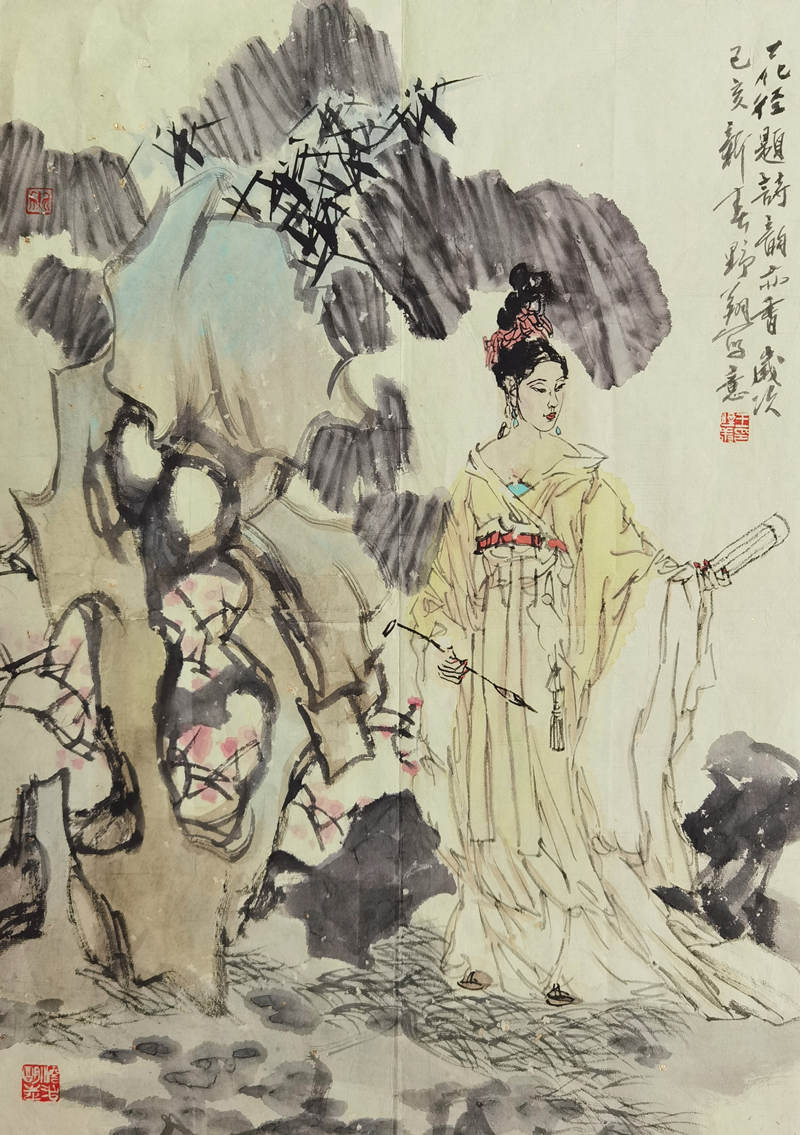 花径题詩韵亦香 歲次
己亥新春野翔写意